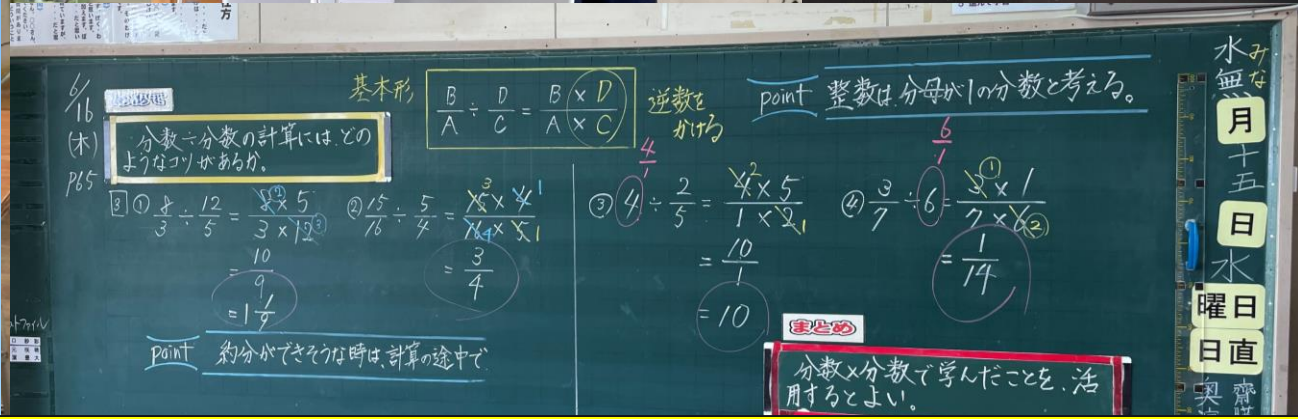 6/16
(木)
P65
分数÷分数の計算には、どの
ようなコツがあるか。
基本形
B/A ÷ D/C = B×D/A×C
逆数を
かける
point 整数は、分母が1の分数と考える。
3 ① 8/3 ÷ 12/5 = 8×5/3×12
2 3
= 10/9
= 1 1/9
② 15/16 ÷ 5/4 = 15×4/16×5
3 1 4 1
= 3/4
4/1
③ 4 ÷ 2/5 = 4×5/1×2
2 1
= 10/1
= 10
6/1
④ 3/7 ÷ 6 = 3×1/7×6
1 2
= 1/14
point 約分ができそうな時は、計算の途中で
まとめ
分数×分数で学んだことを、活
用するとよい。
みな
水無
月
十五
日
水
曜日
日直